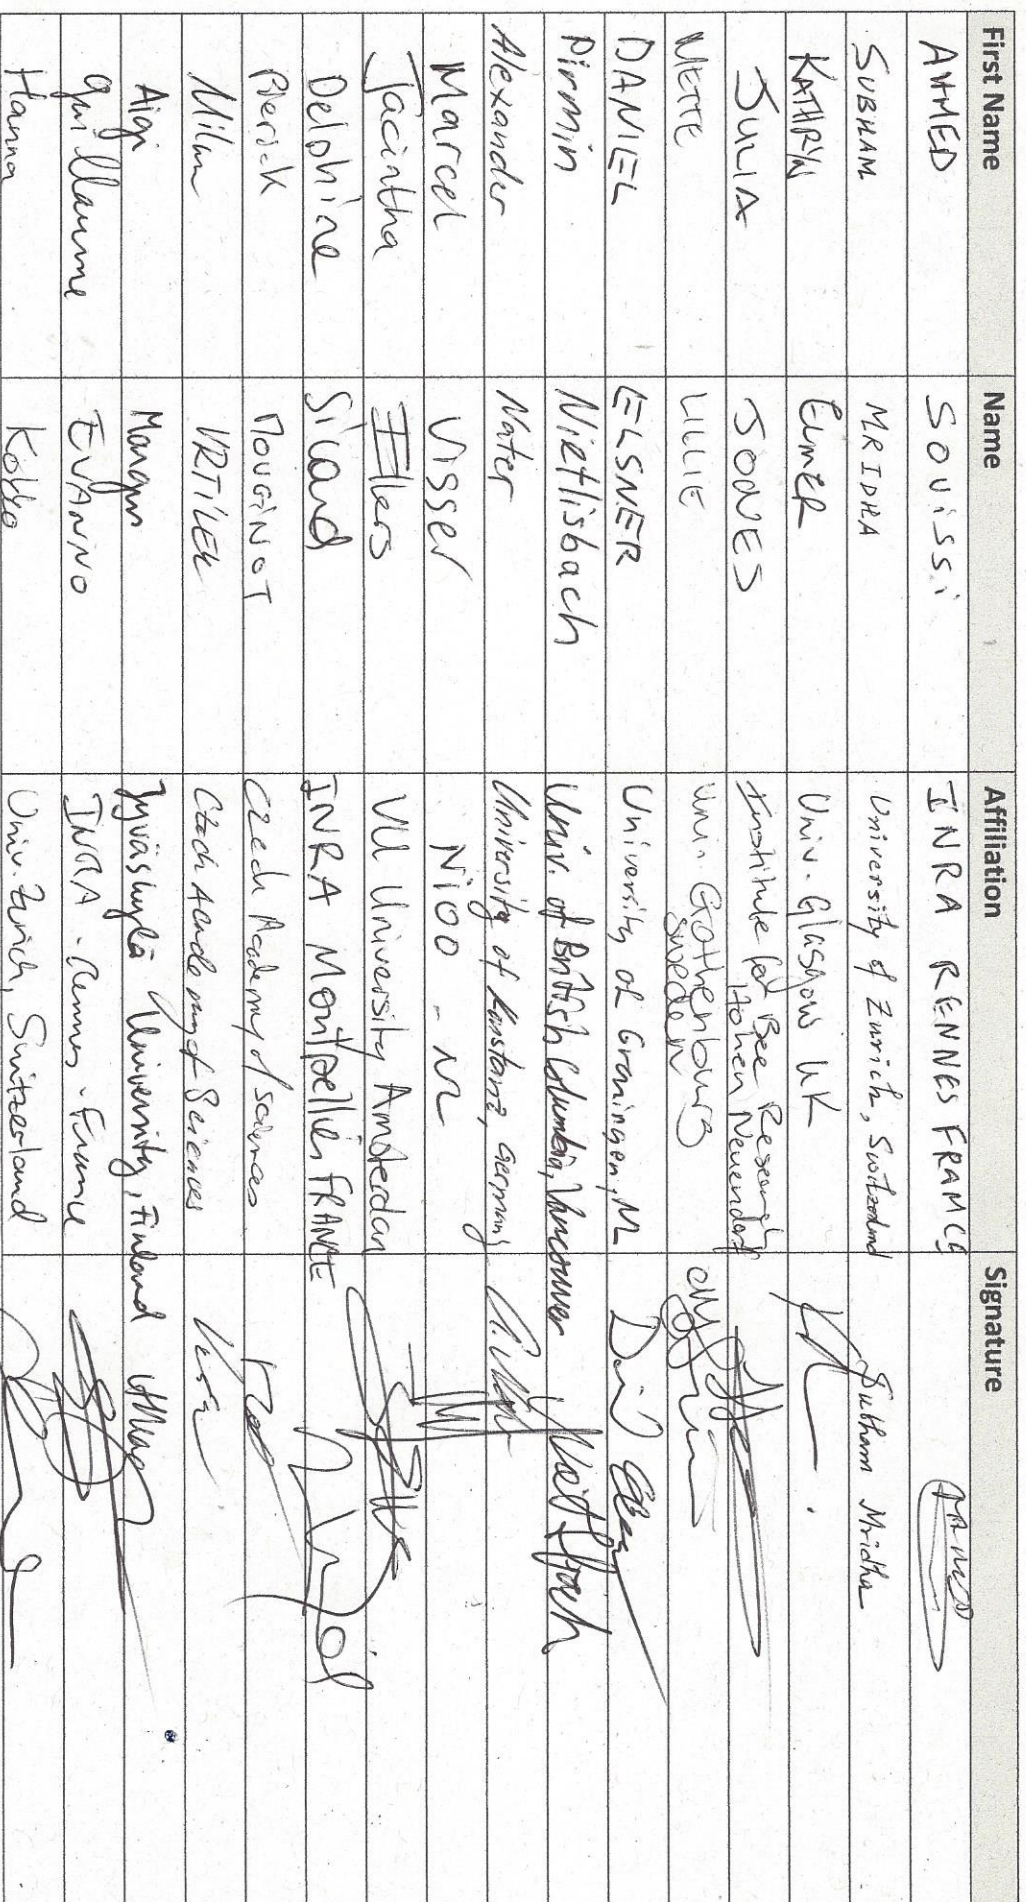 First Name Name Affiliation Signature
AHMED SOUISSI INRA RENNES FRANCE
SUBHAM MRIDHA University of Zurich, Switzerland Subham Mridha
KATHRYN ELMER Univ. Glasgow UK
JULIA JONES Institute for Bee Research Hohen Neuendorf
METTE LILLIE Uni. Gothenburg Sweden
DANIEL ELSNER University of Groningen, NL
Pirmin Nietlisbach Univ. of British Columbia, Vancouver
Alexander Nater University of Konstanz, Germany
Marcel Visser NIOO - NL
Jacintha Ellers VU University Amsterdam
Delphine Sicard INRA Montpellier FRANCE
Pierick MOUGINOT Czech Academy of Sciences
Milan VRTILEK Czech Academy of Sciences
Aigi Margus Jyväskylä University, Finland
guillaume EVANNO INRA - Rennes - France
Hanna Kokko Univ. Zurich, Switzerland